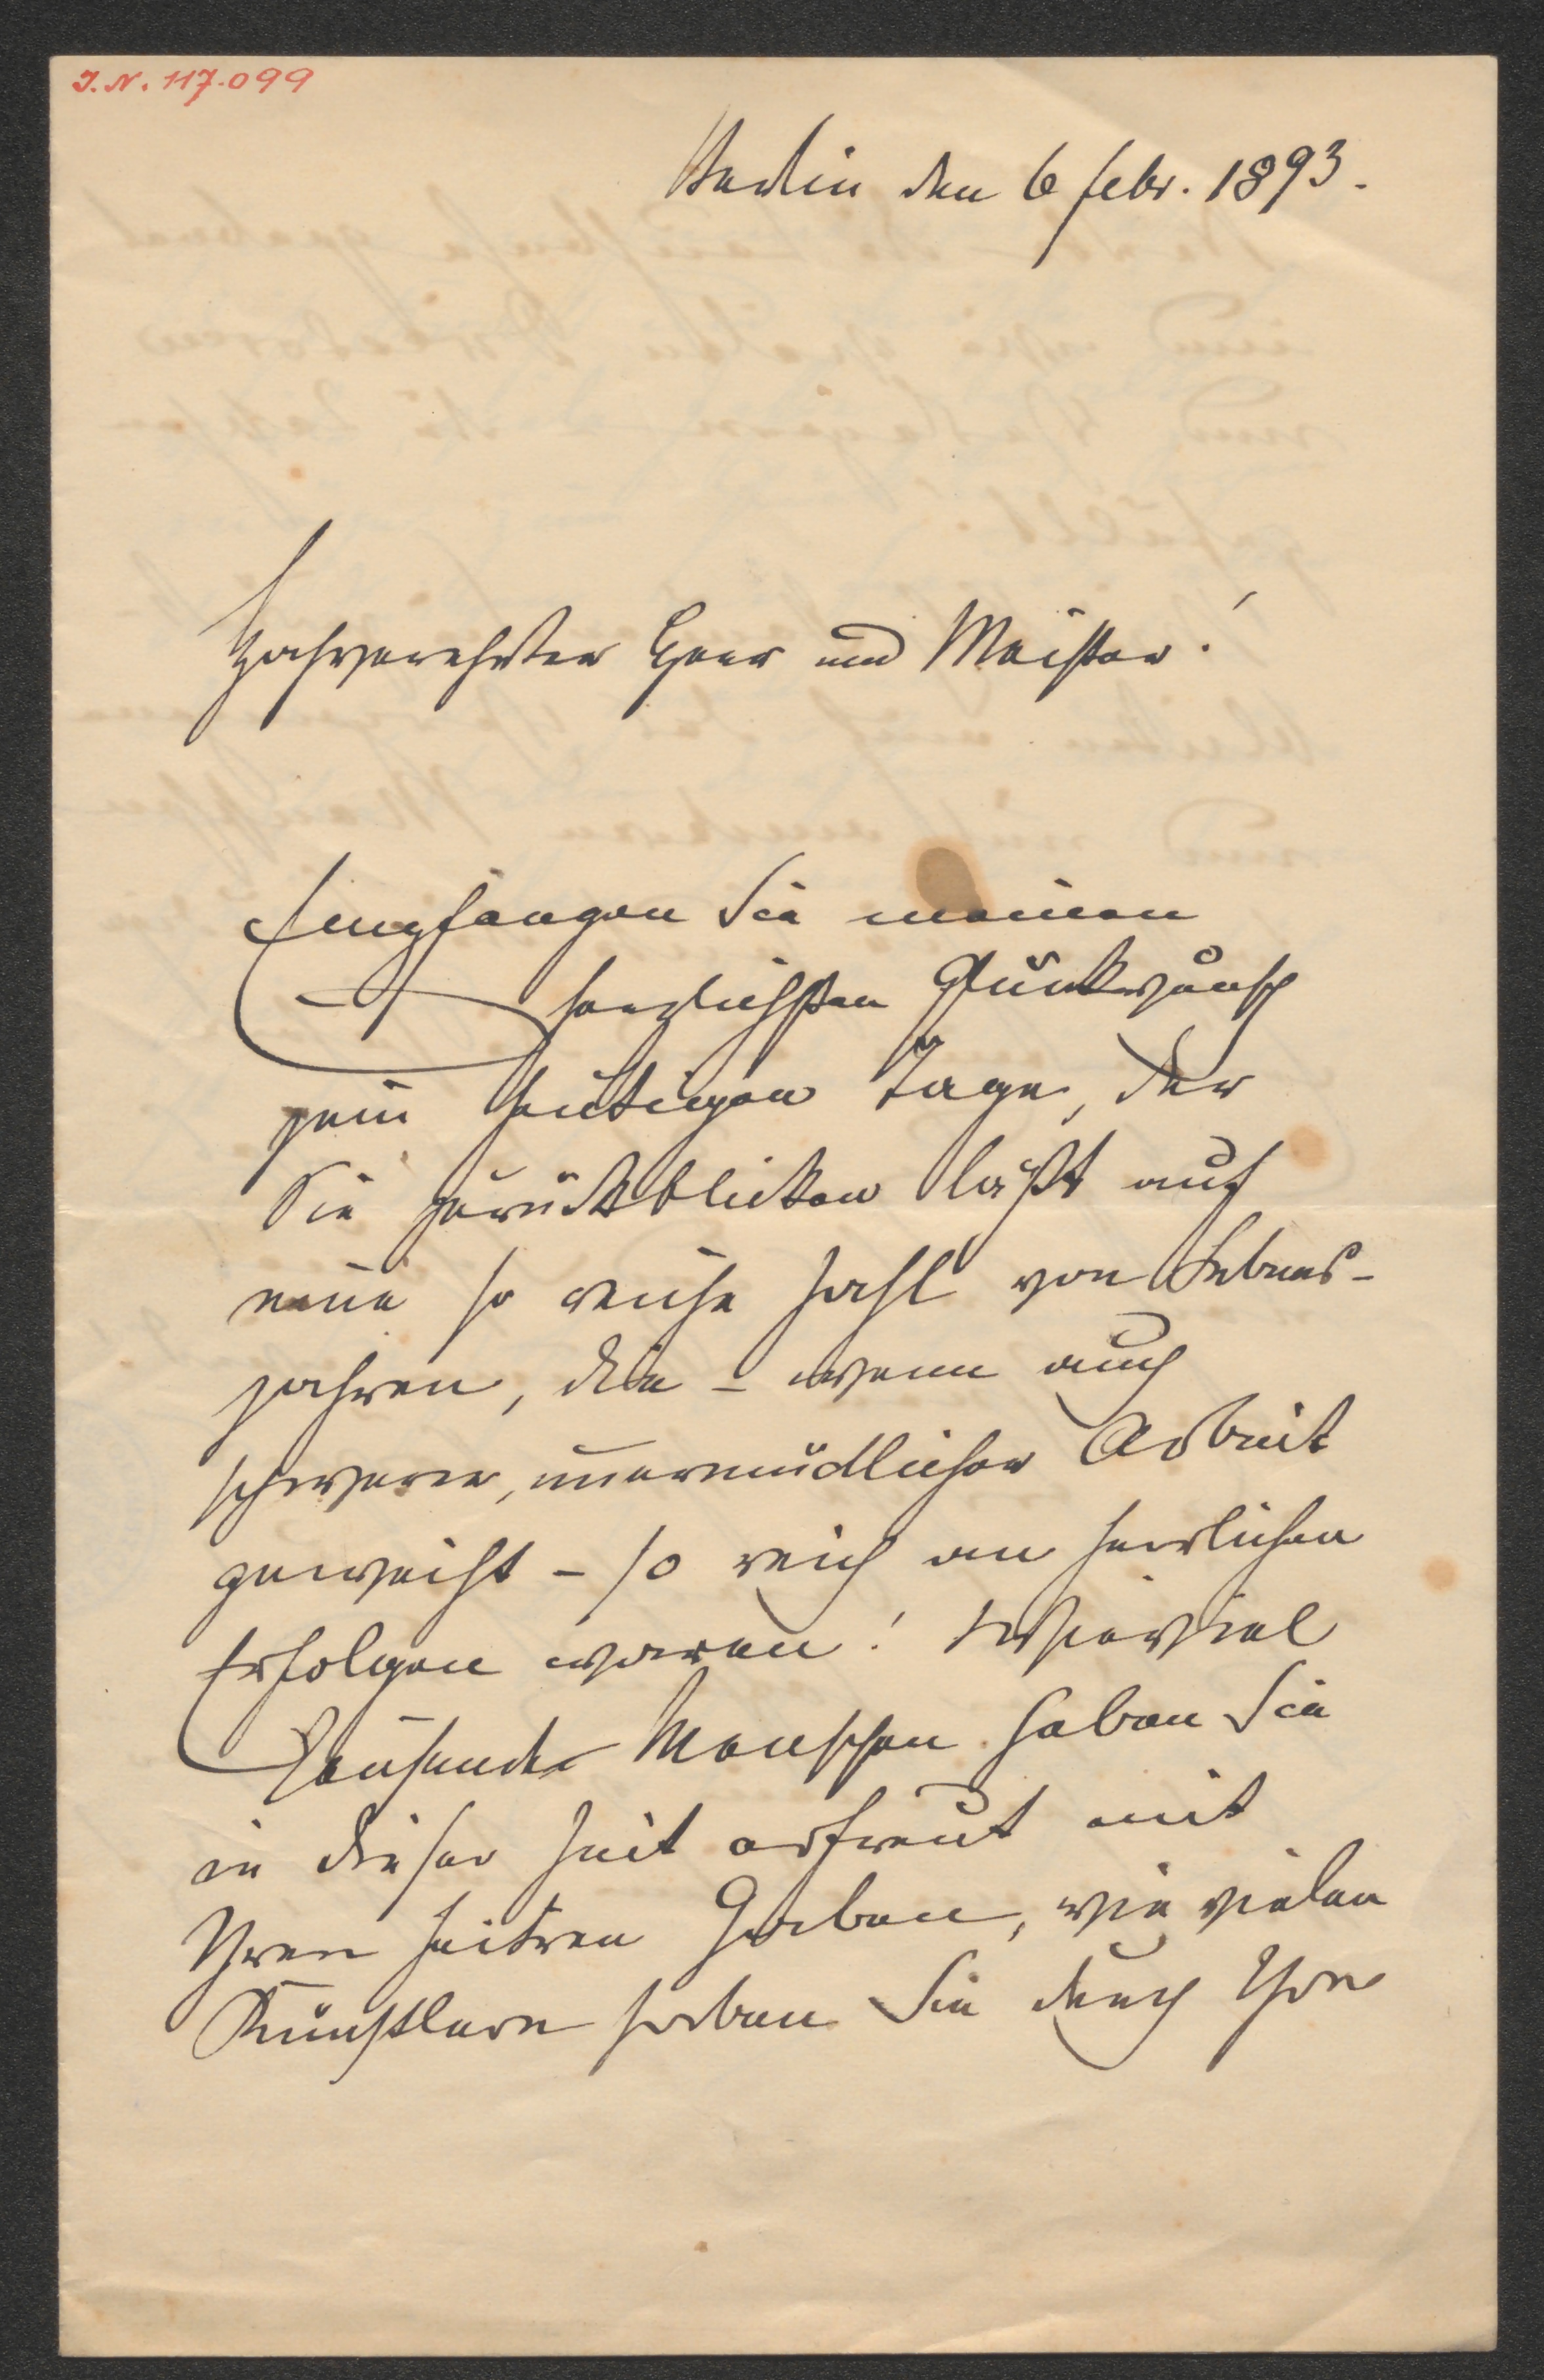 J. N. 117.099
Berlin den 6 Febr. 1893.
Hochverehrter Herr und Meister!
Empfangen Sie meinen
herzlichsten Glückwunsch
zum heutigen Tage, der
Sie zurückblicken läßt auf
eine so reiche Zahl von Lebens-
jahren, die – wenn auch
schwerer, unermüdlicher Arbeit
geweiht – so reich an herrlichen
Erfolgen waren! Wieviel
Tausende Menschen haben Sie
in dieser Zeit erfreut mit
Ihren heitren Gaben, wie vielen
Künstlern haben Sie durch Ihre